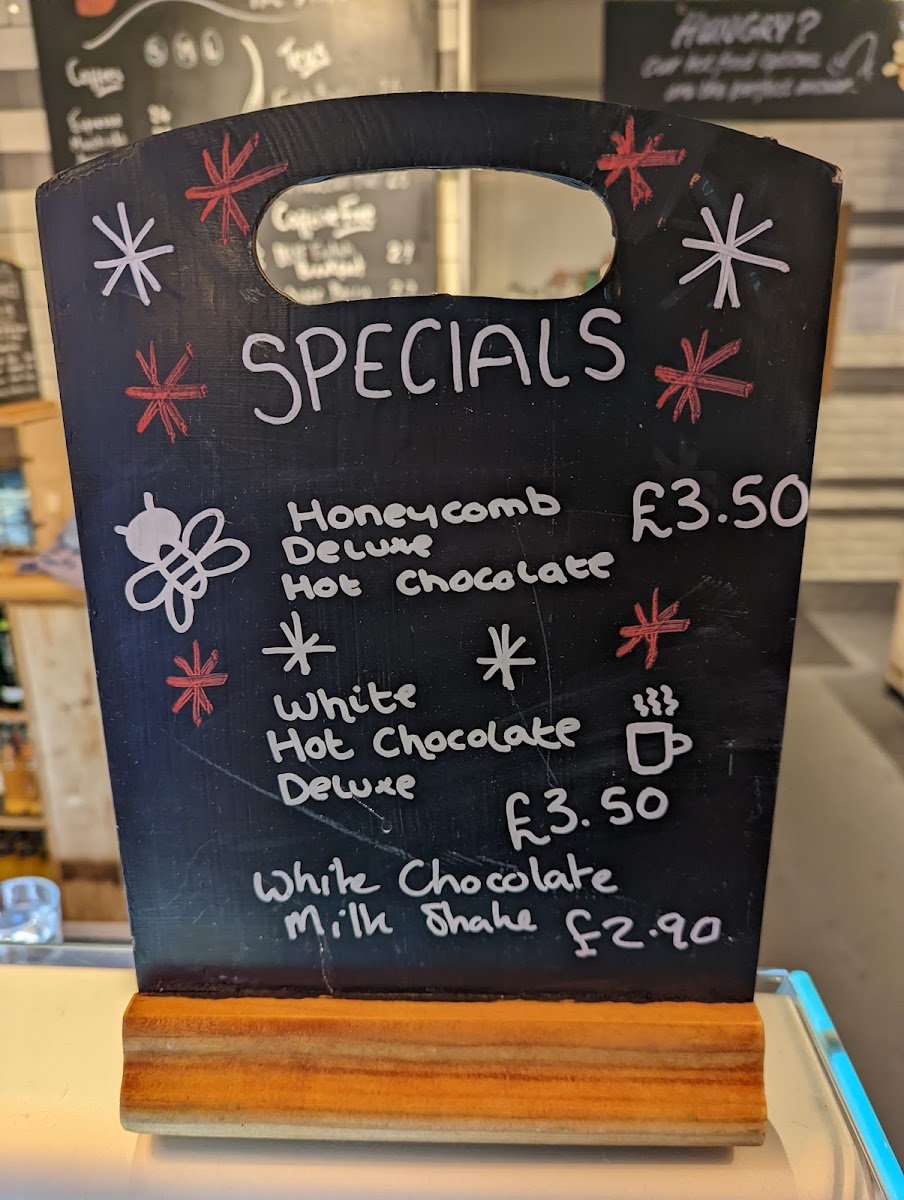 HUNGRY?
Our hot food options
are the perfect answer.
Coffees
S M L
Teas
Caffeine Free
SPECIALS
Honeycomb £3.50
Deluxe
Hot Chocolate
White
Hot Chocolate
Deluxe
£3.50
White Chocolate
Milk Shake £2.90